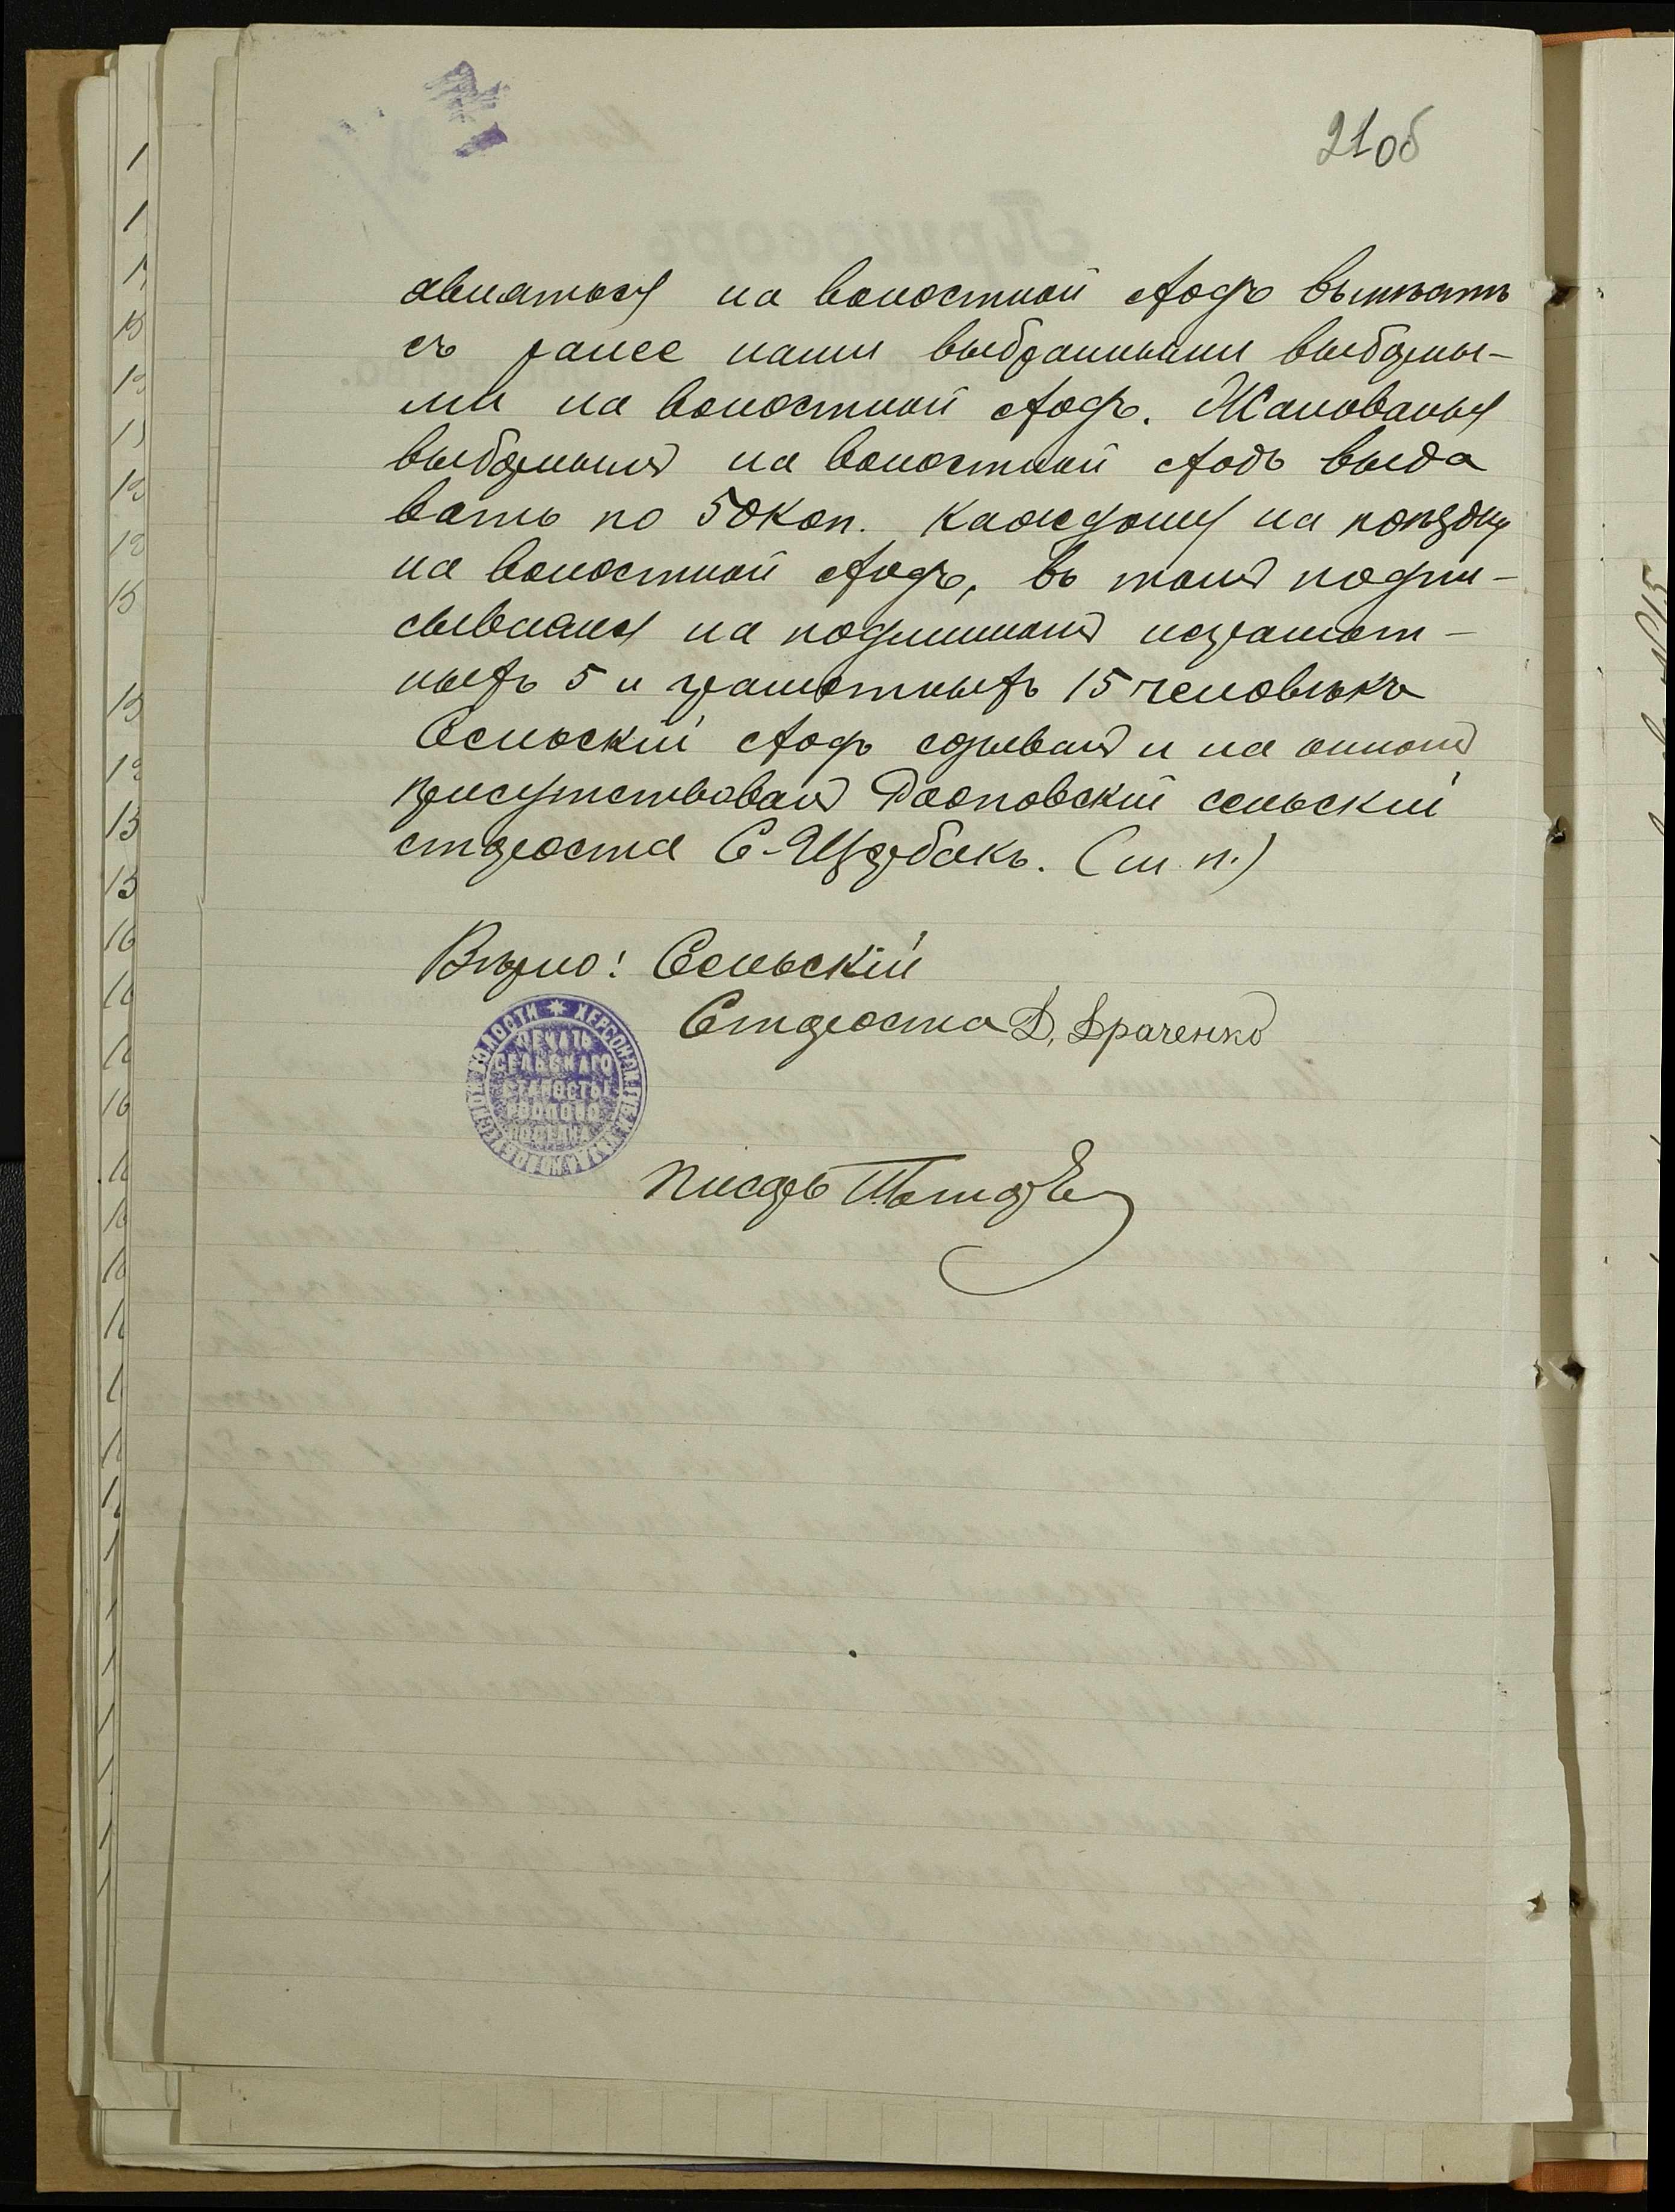 21об
авляться на волостной сходъ вместѣ
съ ранее нами выбранными выборны-
ми на волостной сходъ. Жалованья
выборнымъ на волостной сходъ выда
вать по 50 коп. каждому на поѣздку
на волостной сходъ, въ томъ подпи-
сываемся на подлинномъ неграмот-
ныхъ 5 и грамотныхъ 15 человѣкъ
Сельскій сходъ созывалъ и на ономъ
присутствовалъ сельскій
староста С. Щербакъ. (м. п.)
Вѣрно: Сельскій
Староста Д. Драченко
ПЕЧАТЬ
СЕЛЬСКАГО
СТАРОСТЫ
ВОЛОСТИ * ХЕРСОН.
Писарь